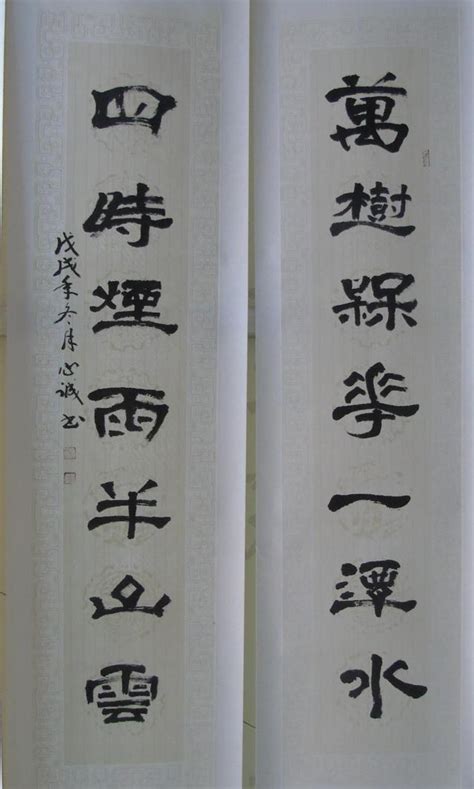 萬樹槑花一潭水
四時煙雨半山雲
戊戌年冬月心诚书